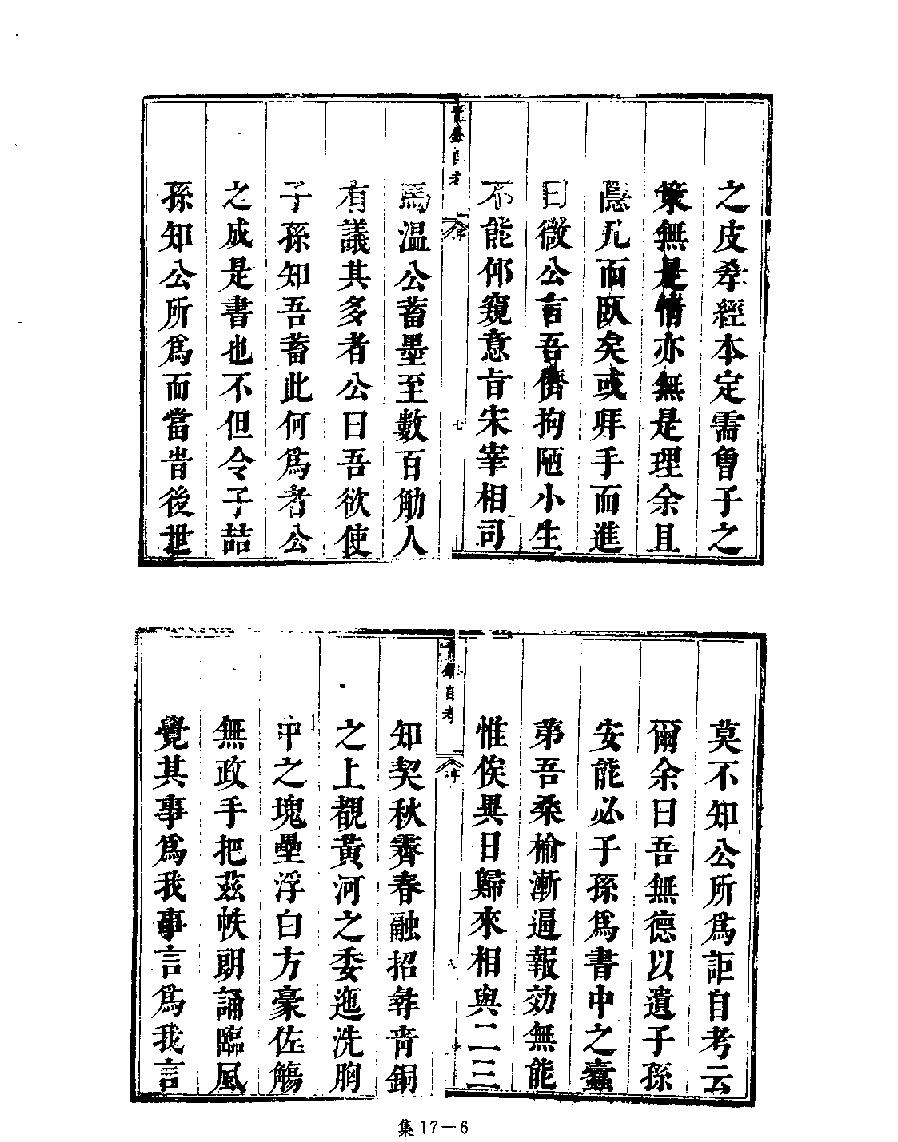 之皮牽經本定需會子之
策無是情亦無是理余且
隱几而臥矣或拜手而進
曰微公言吾儕拘陋小生
不能仰窺意旨宋宰相司
自考
序
七
馬温公蓄墨至數百觔人
有議其多者公曰吾欲使
子孫知吾蓄此何爲者公
之成是書也不但令子喆
孫知公所爲而當昔後世
莫不知公所爲詎自考云
爾余曰吾無德以遺子孫
安能必子孫爲書中之蠹
第吾桑榆漸逼報効無能
惟俟異日歸來相與二三
自考
序
八
知契秋霽春融招尋青銅
之上覩黃河之委迤洗胸
中之塊壘浮白方豪佐觴
無政手把茲帙朗誦臨風
覺其事爲我事言爲我言
集17－6